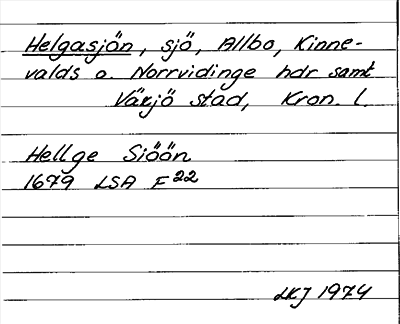 Helgasjön, sjö, Allbo, Kinne-
valds o. Norrvidinge hdr samt
Växjö stad, Kron. l.
Hellge Siöön
1679 LSA F22
LKJ 1974